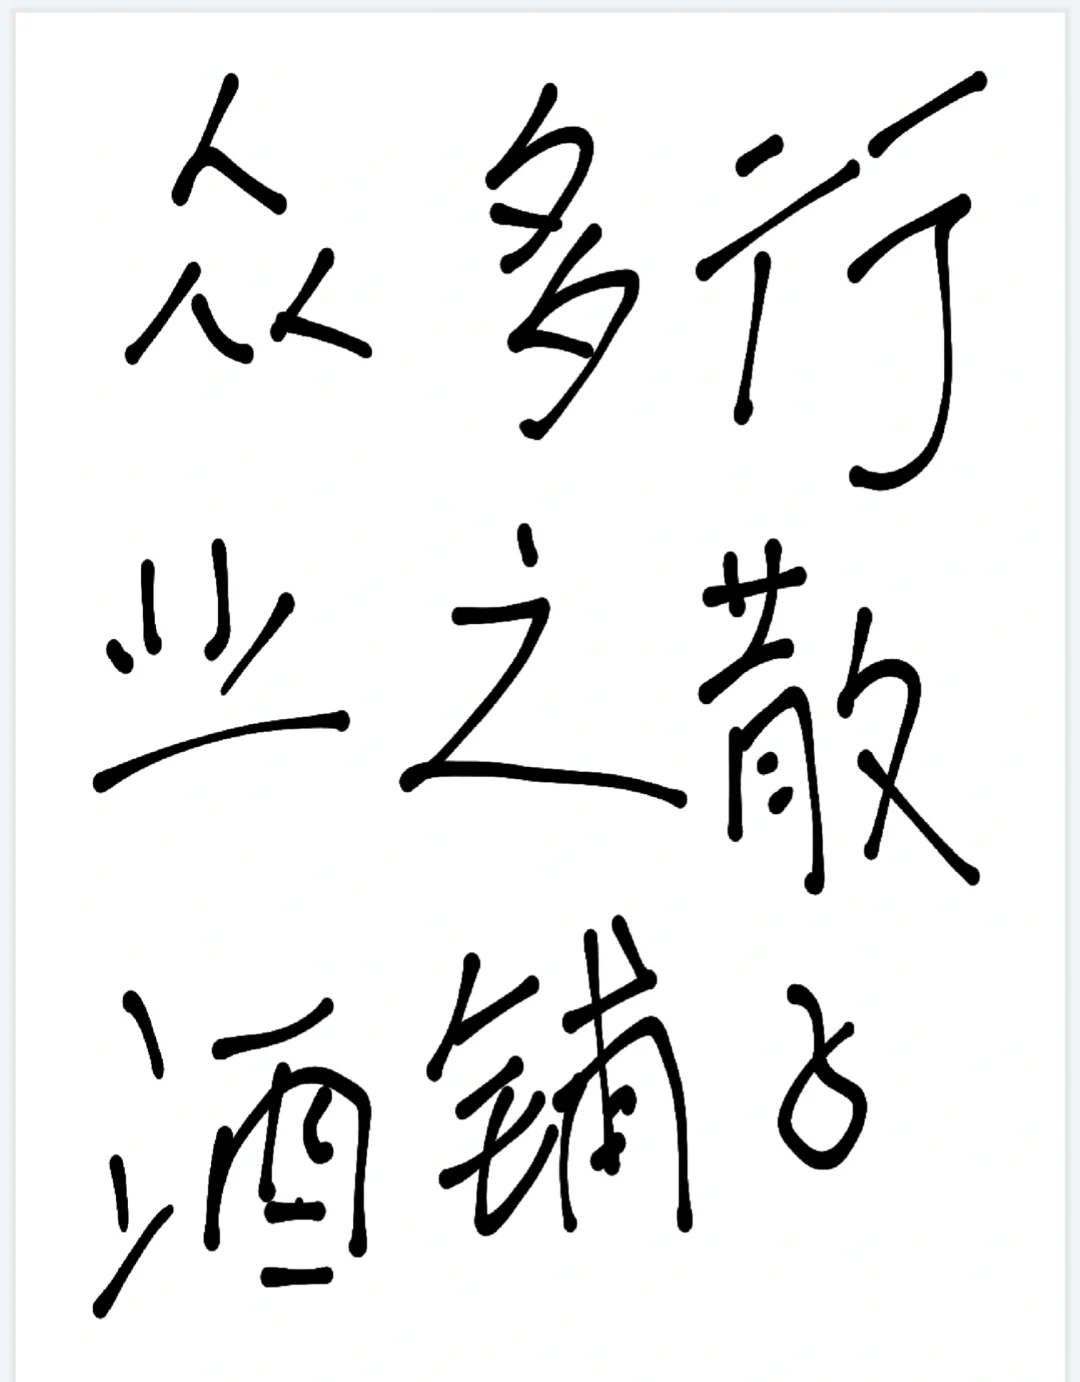 众多行
业之散
酒铺。